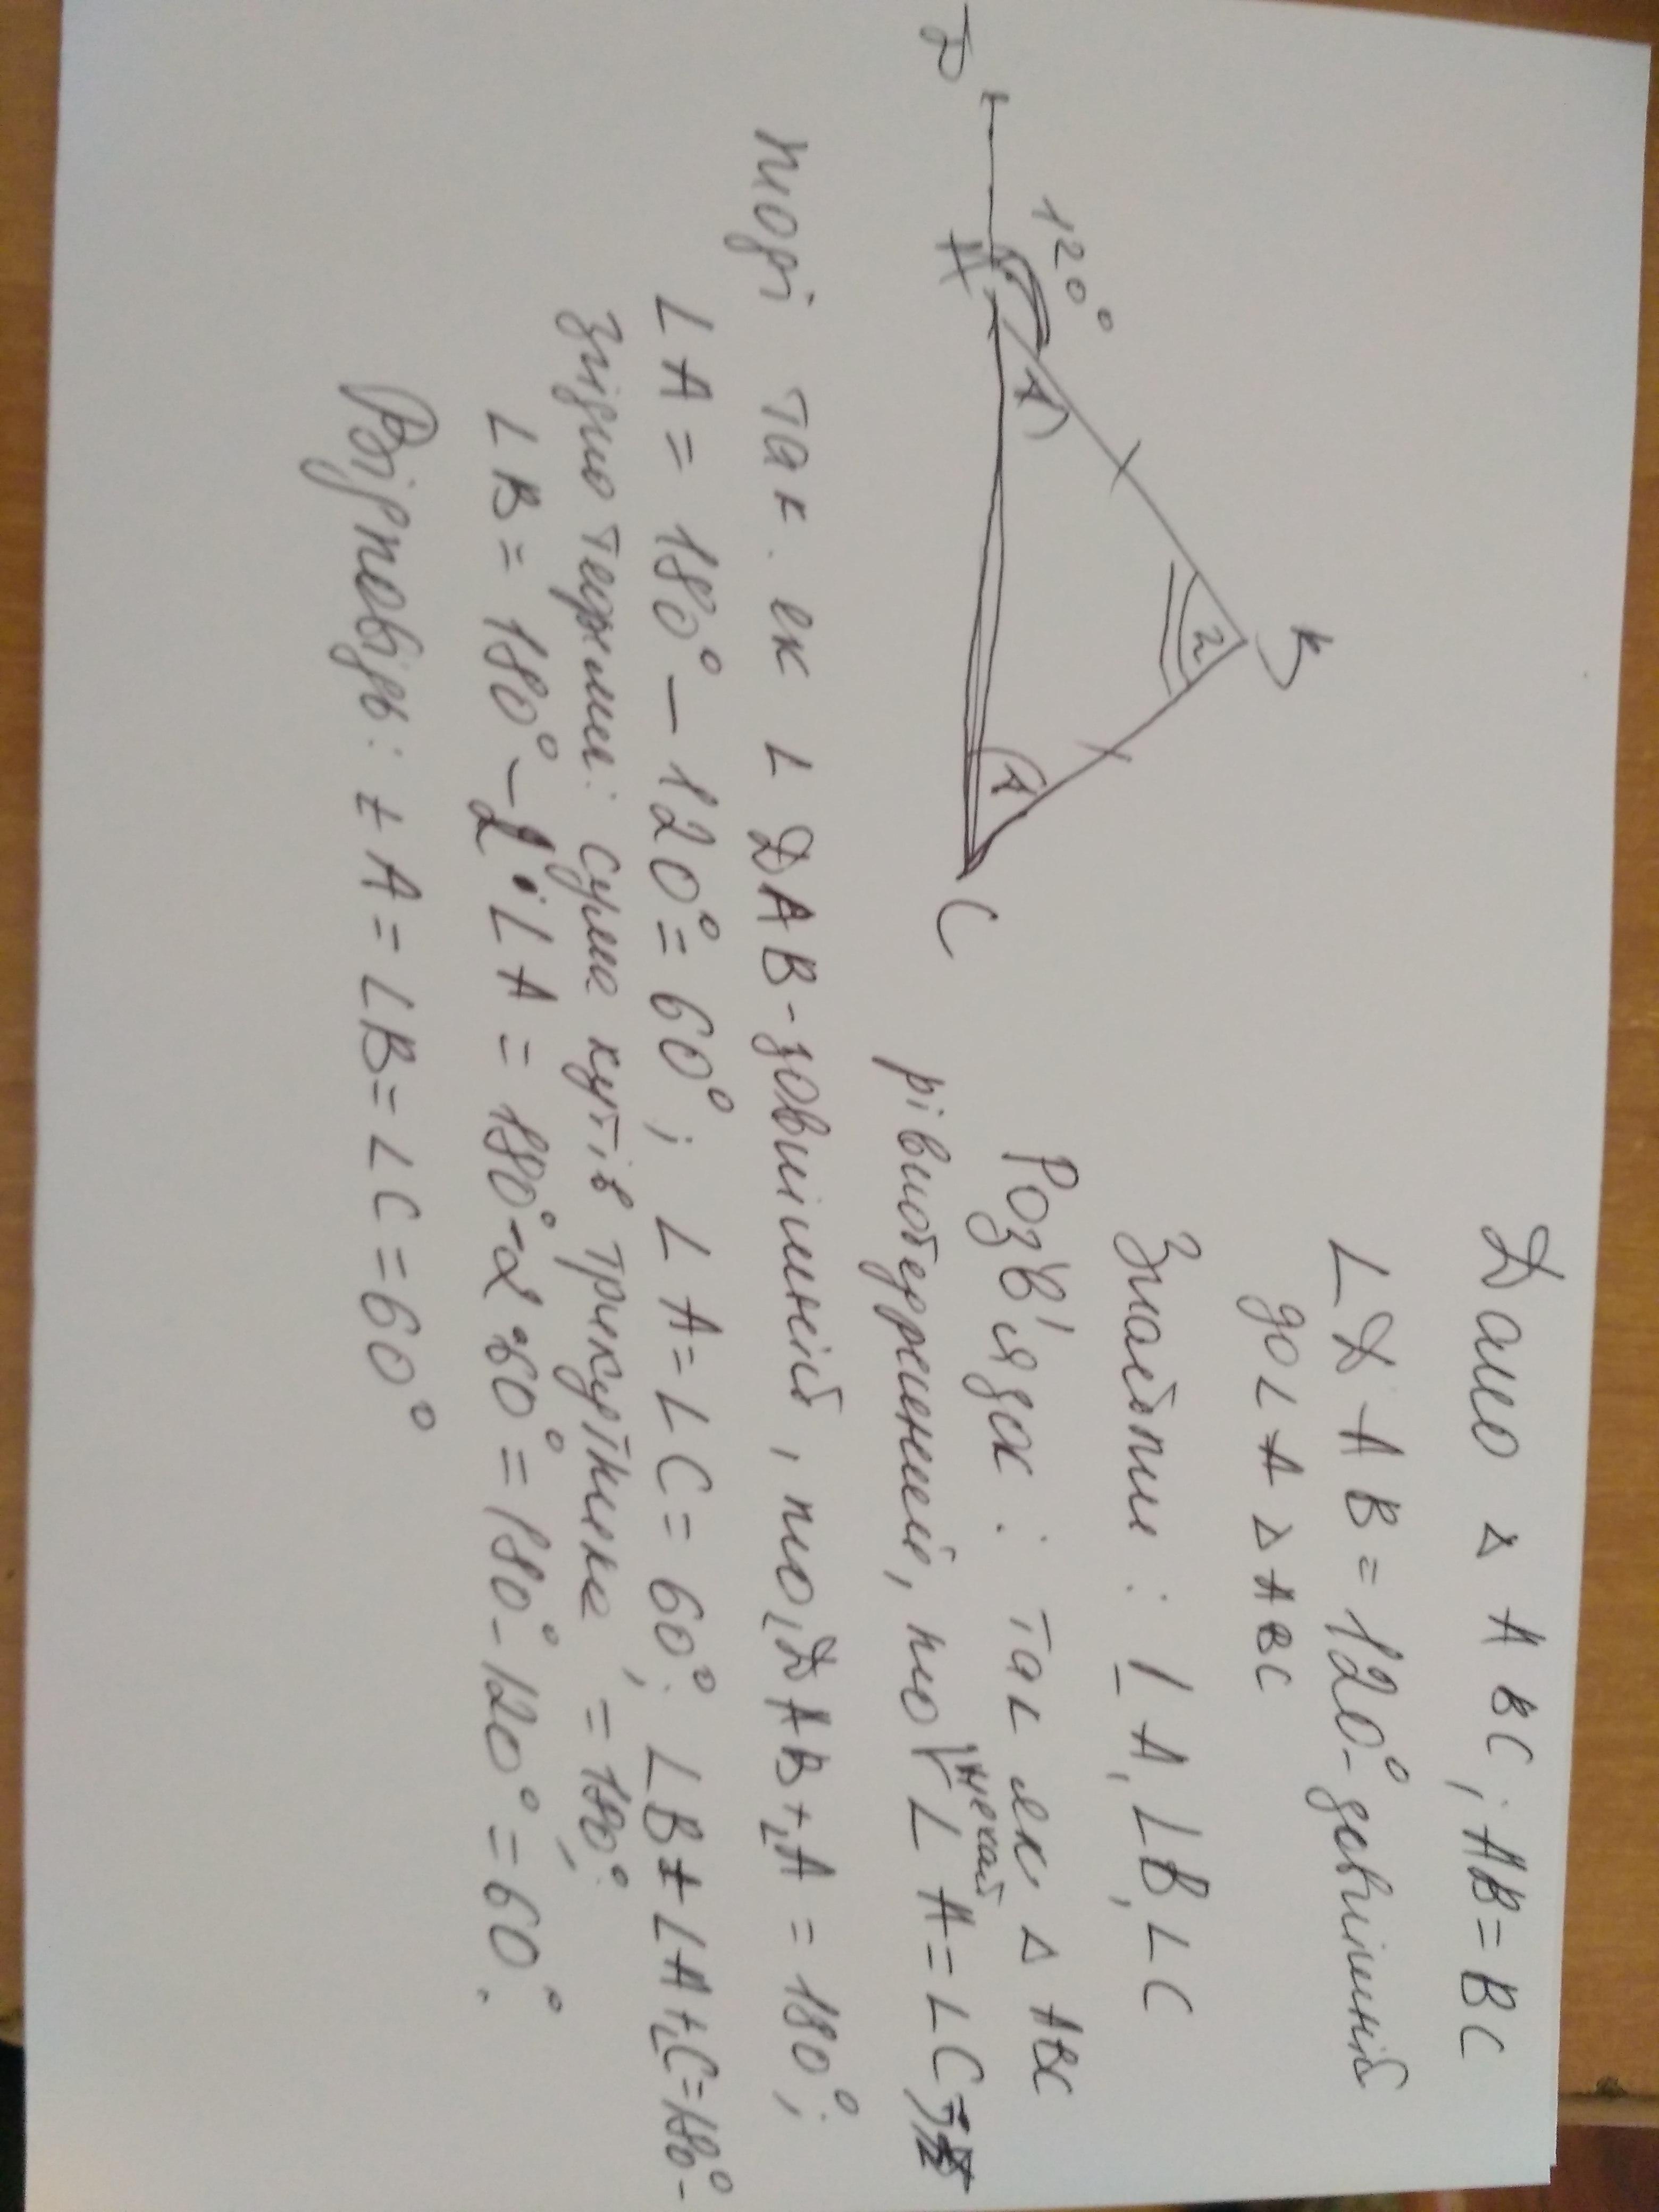 Дано △ ABC; AB=BC
∠ДAB=120°-зовнішній
до∠A △ABC
Знайти: ∠A, ∠B, ∠C
B
120°
2
1
1
Д
A
C
Розв'язок: так як △ ABC
рівнобедренний, то ∠A=∠C
тоді так як ∠ДAB-зовнішній, то ∠ДAB+∠A=180°;
∠A=180°-120°=60°; ∠A=∠C=60°; ∠B+∠A+∠C=180°-
Згідно теореми: сума кутів трикутника, =180°;
∠B=180°-2·∠A=180°-2·60°=180°-120°=60°.
Відповідь: ∠A=∠B=∠C=60°